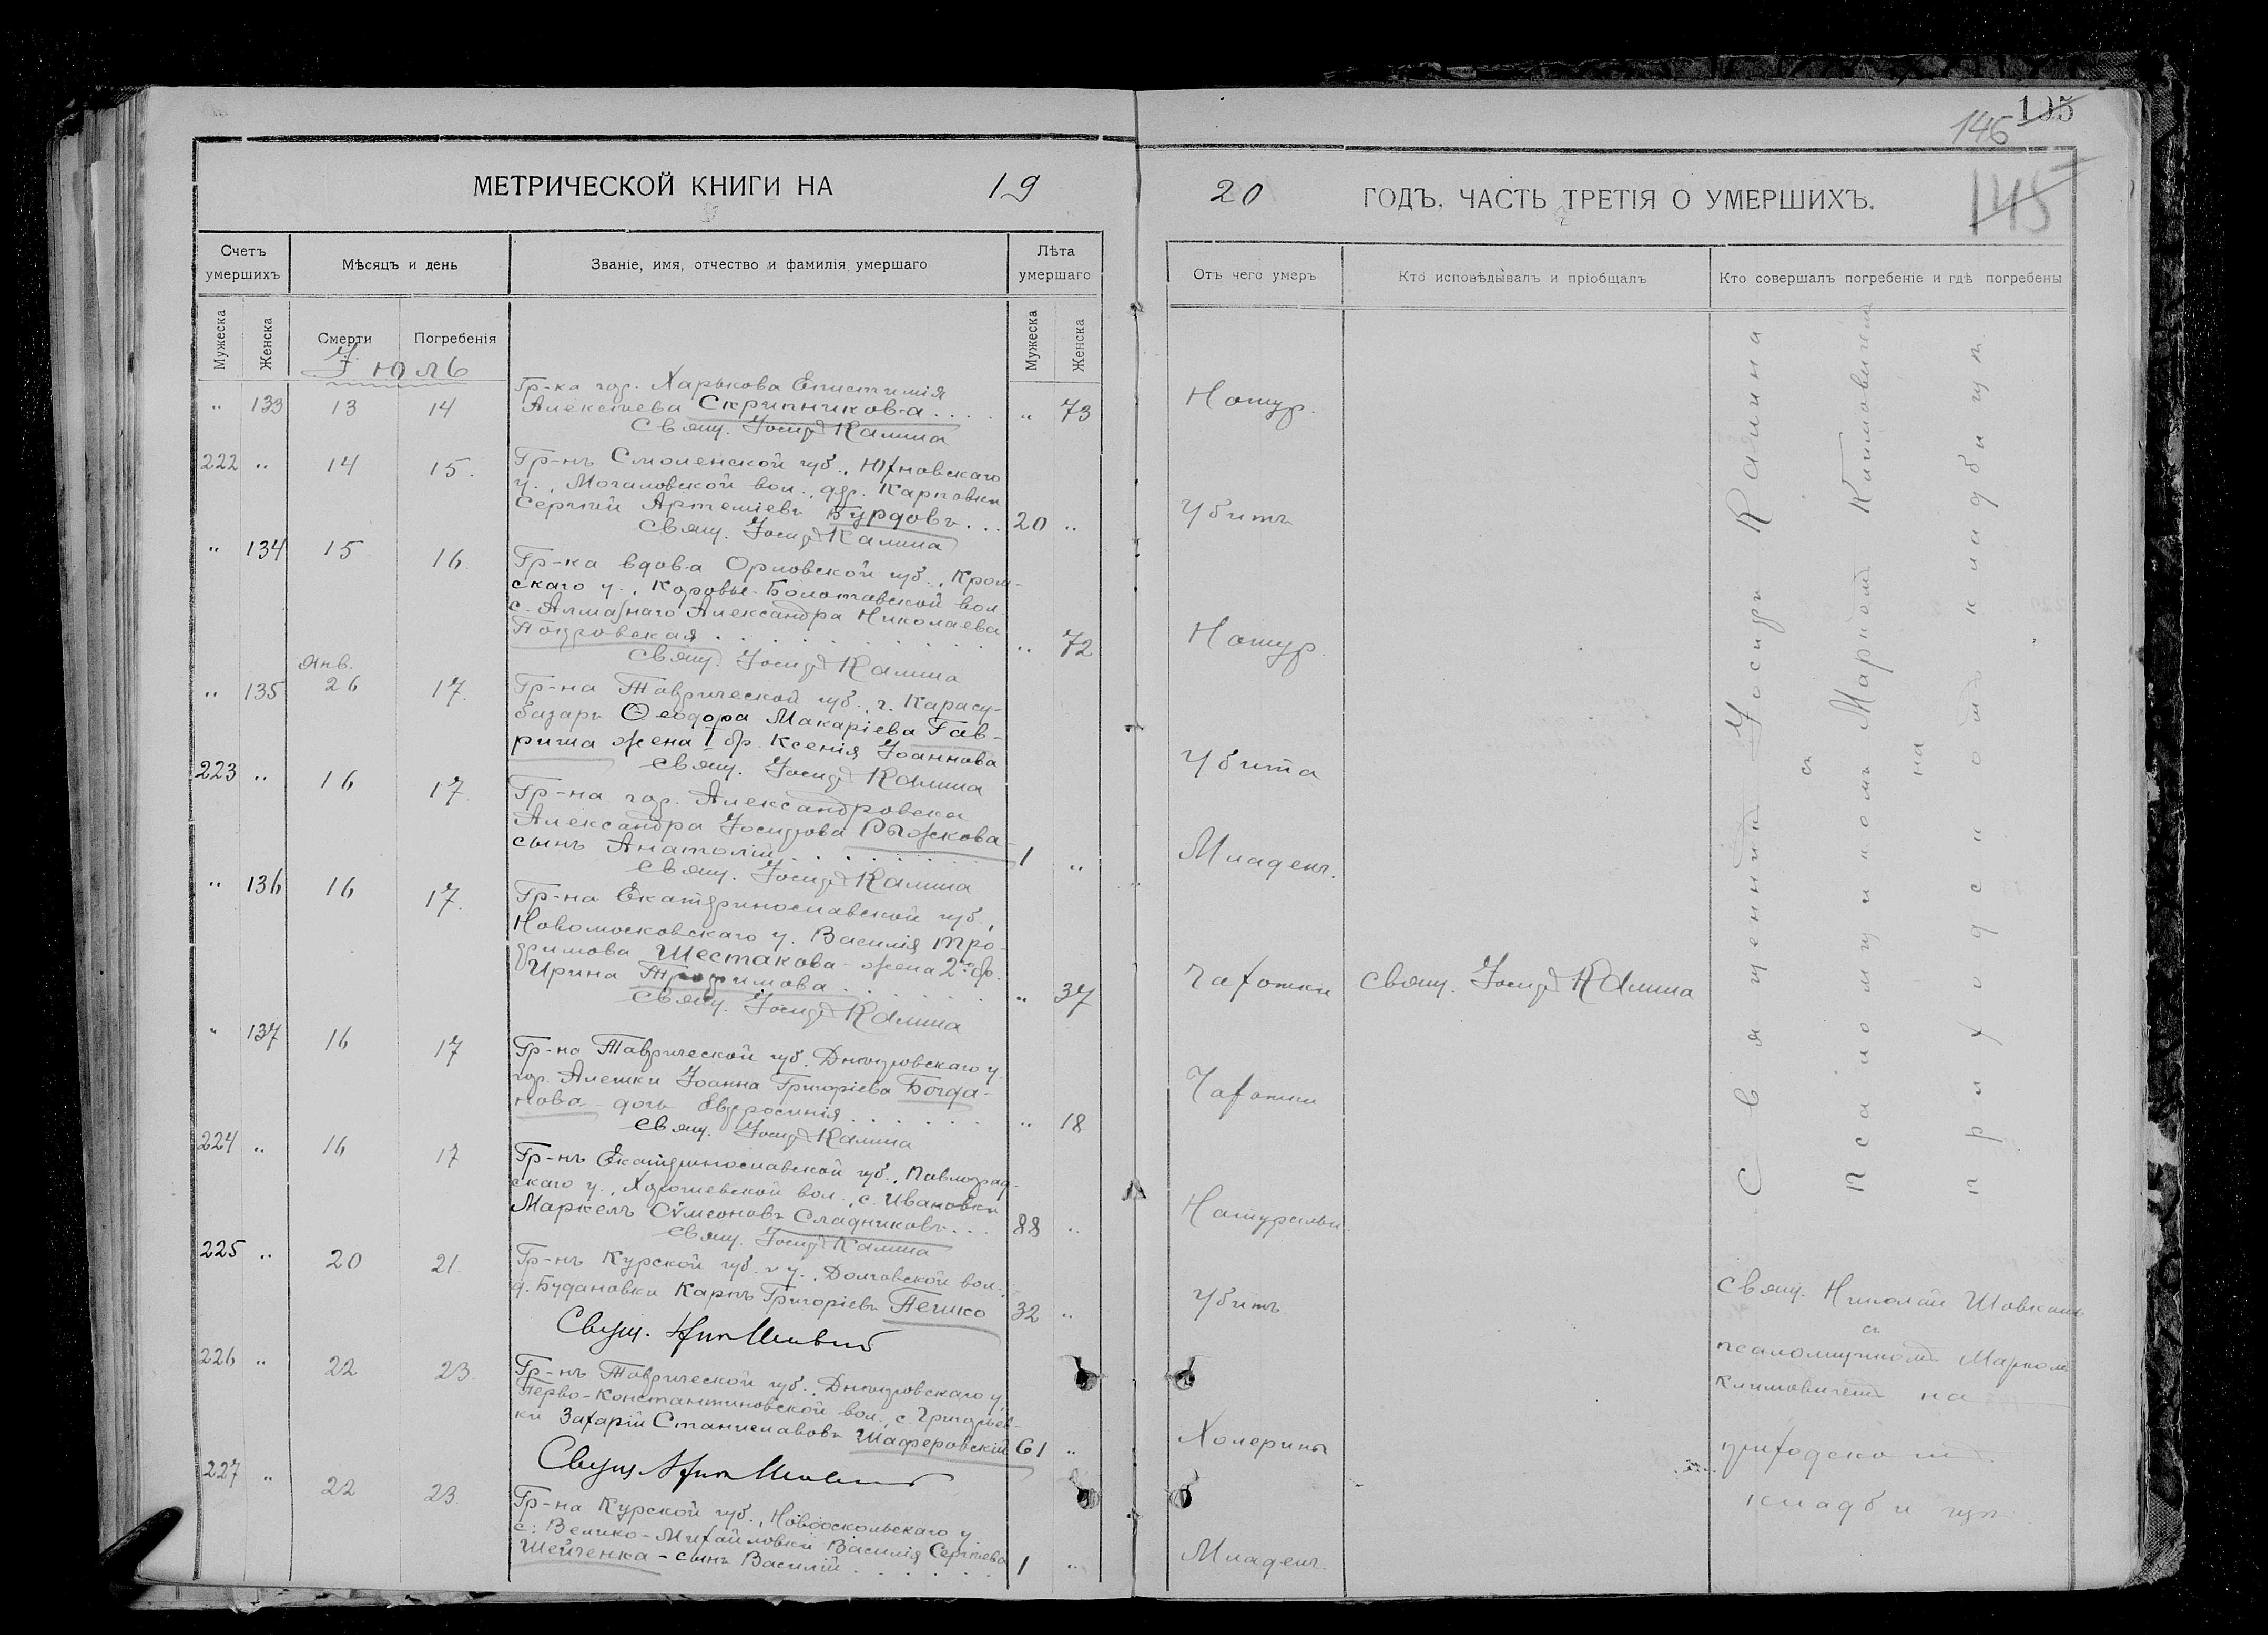 105
146
145
МЕТРИЧЕСКОЙ КНИГИ НА 19
20 ГОДЪ, ЧАСТЬ ТРЕТІЯ О УМЕРШИХЪ.
Счетъ умершихъ
Мѣсяцъ и день
Званіе, имя, отчество и фамилія умершаго
Лѣта умершаго
Отъ чего умеръ
Кто исповѣдывалъ и пріобщалъ
Кто совершалъ погребеніе и гдѣ погребены
Мужеска
Женска
Смерти
Погребенія
Мужеска
Женска
Іюль
" 133 13 14
Гр-ка гор. Харькова Епистимія
Алексіева Скрипникова . . . . " 73
Натур.
Свящ. Іосифъ Калина
222 " 14 15.
Гр-нъ Смоленской губ., Юхновскаго
у., Мочаловской вол., дер. Карповки
Сергій Артеміевъ Бурдовъ . . . 20 "
Убитъ
Свящ. Іосифъ Калина
" 134 15 16.
Гр-ка вдова Орловской губ., Кром-
скаго у., Коровье-Болотовской вол.
с. Алмазнаго Александра Николаева
Покровская . . . " 72
Натур.
Свящ. Іосифъ Калина
" 135 Янв. 26 17.
Гр-на Таврической губ., г. Карасу-
базаръ Ѳеодора Макаріева Гав-
риша жена 1 бр. Ксенія Іоаннова
Убита
Свящ. Іосифъ Калина
223 " 16 17
Гр-на гор. Александровска
Александра Іосифова Рыжкова
сынъ Анатолій . . . 1 "
Младенч.
Свящ. Іосифъ Калина
" 136 16 17.
Гр-на Екатеринославской губ.,
Новомосковскаго у. Василія Тро-
фимова Шестакова - жена 2го бр.
Ирина Трофимова . . . " 37
Чахотки
Свящ. Іосифъ Калина
Свящ. Іосифъ Калина
" 137 16 17
Гр-на Таврической губ. Днѣпровскаго у.
гор. Алешки Іоанна Григоріева Богда-
нова - дочь Евфросинія . . . " 18
Чахотки
Свящ. Іосифъ Калина
224 " 16 17
Гр-нъ Екатеринославской губ., Павлоград-
скаго у., Хорошевской вол., с. Ивановки
Маркелъ Сѵмеоновъ Сладниковъ . . . 88 "
Натуральн.
Свящ. Іосифъ Калина
225 " 20 21.
Гр-нъ Курской губ. и у., Долговской вол.,
д. Будановки Карпъ Григоріевъ Пешко 32 "
Убитъ.
Свящ.
226 " 22 23.
Гр-нъ Таврической губ., Днѣпровскаго у.
Перво-Константиновской вол., с. Григорьев-
ки Захарій Станиславовъ Шаферовскій 61 "
Холерины
Свящ.
227 " 22 23.
Гр-на Курской губ., Новооскольскаго у.
с. Велико-Михайловки Василія Сергіева
Шейченка - сынъ Василій . . . 1 "
Младенч.
Священникъ Іосифъ Калина
съ
псаломщикомъ Маркомъ Климовичемъ
на
приходскомъ кладбищѣ.
Свящ. Николай
съ
псаломщикомъ Маркомъ
Климовичемъ на
приходскомъ
кладбищѣ